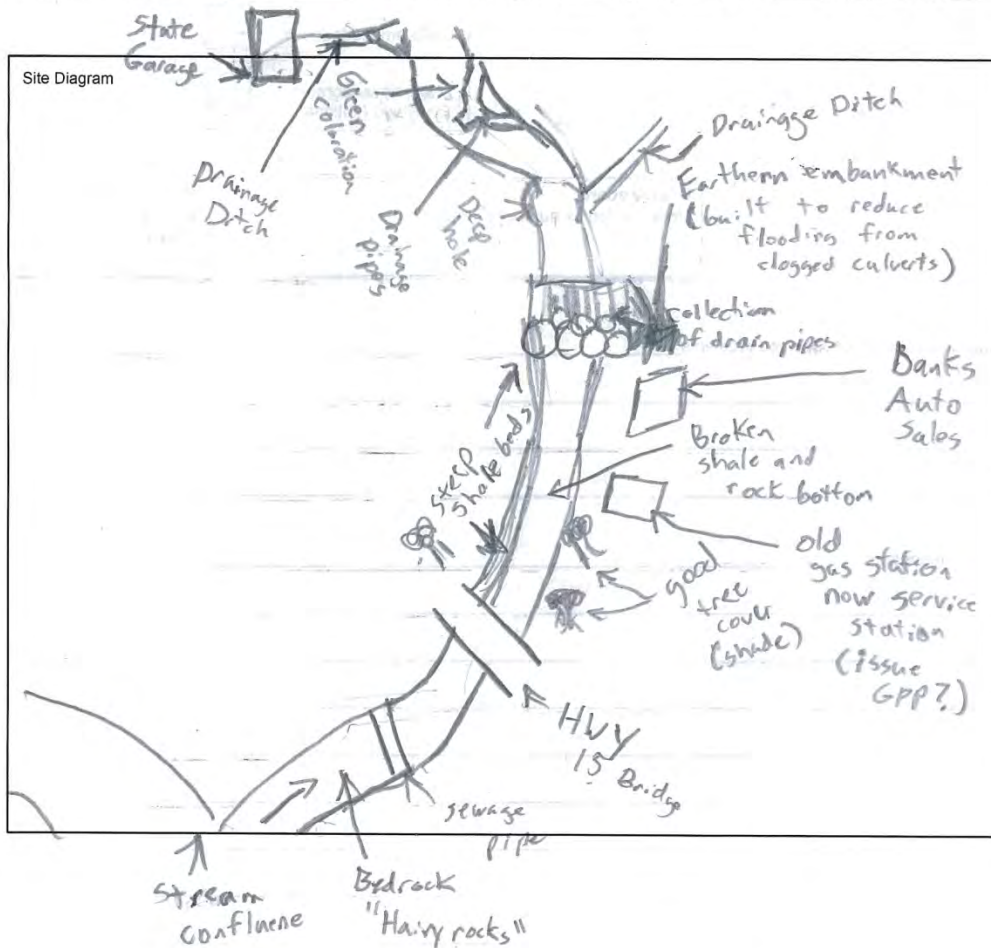 State
Garage
Site Diagram
Green
coloration
Drainage
Ditch
Drainage
pipes
Deep
hole
Drainage Ditch
Earthern embankment
(built to reduce
flooding from
clogged culverts)
collection
of drain pipes
Banks
Auto
Sales
Broken
shale and
rock bottom
steep
shale beds
old
gas station
now service
station
(issue
GPP?)
good
tree
cover
(shade)
HWY
15 Bridge
sewage
pipe
Bedrock
"Hairy rocks"
Stream
confluene